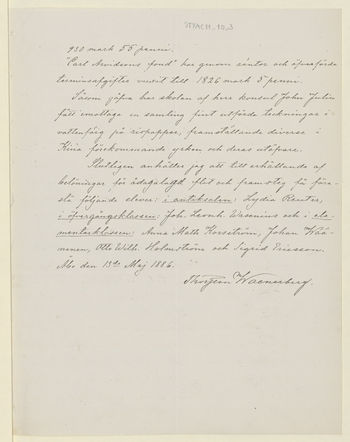 STYACH. 10,3
930 mark 55 penni.
"Carl Arvidssons fond" har genom räntor och öfverförda
terminsafgifter vuxit till 1826 mark 5 penni.
Såsom gåfva har skolan af herr konsul John Julin
fått emottaga en samling fint utförda teckningar i
vattenfärg på rispapper, framställande diverse i
Kina förekommande yrken och deras utöfvare.
Slutligen anhåller jag att till erhållande af
belöningar för ådagalagd flit och framsteg få före-
slå följande elever: i antiksalen: Lydia Renter,
i öfvergångsklassen: Joh. Leonh. Wasenius och i ele-
mentarklassen: Anna Math. Korström, Johan Kää-
nänen, Otto Wilh. Holmström och Sigrid Ericsson.
Åbo den 13de Maj 1886.
Thorsten Waenerberg.